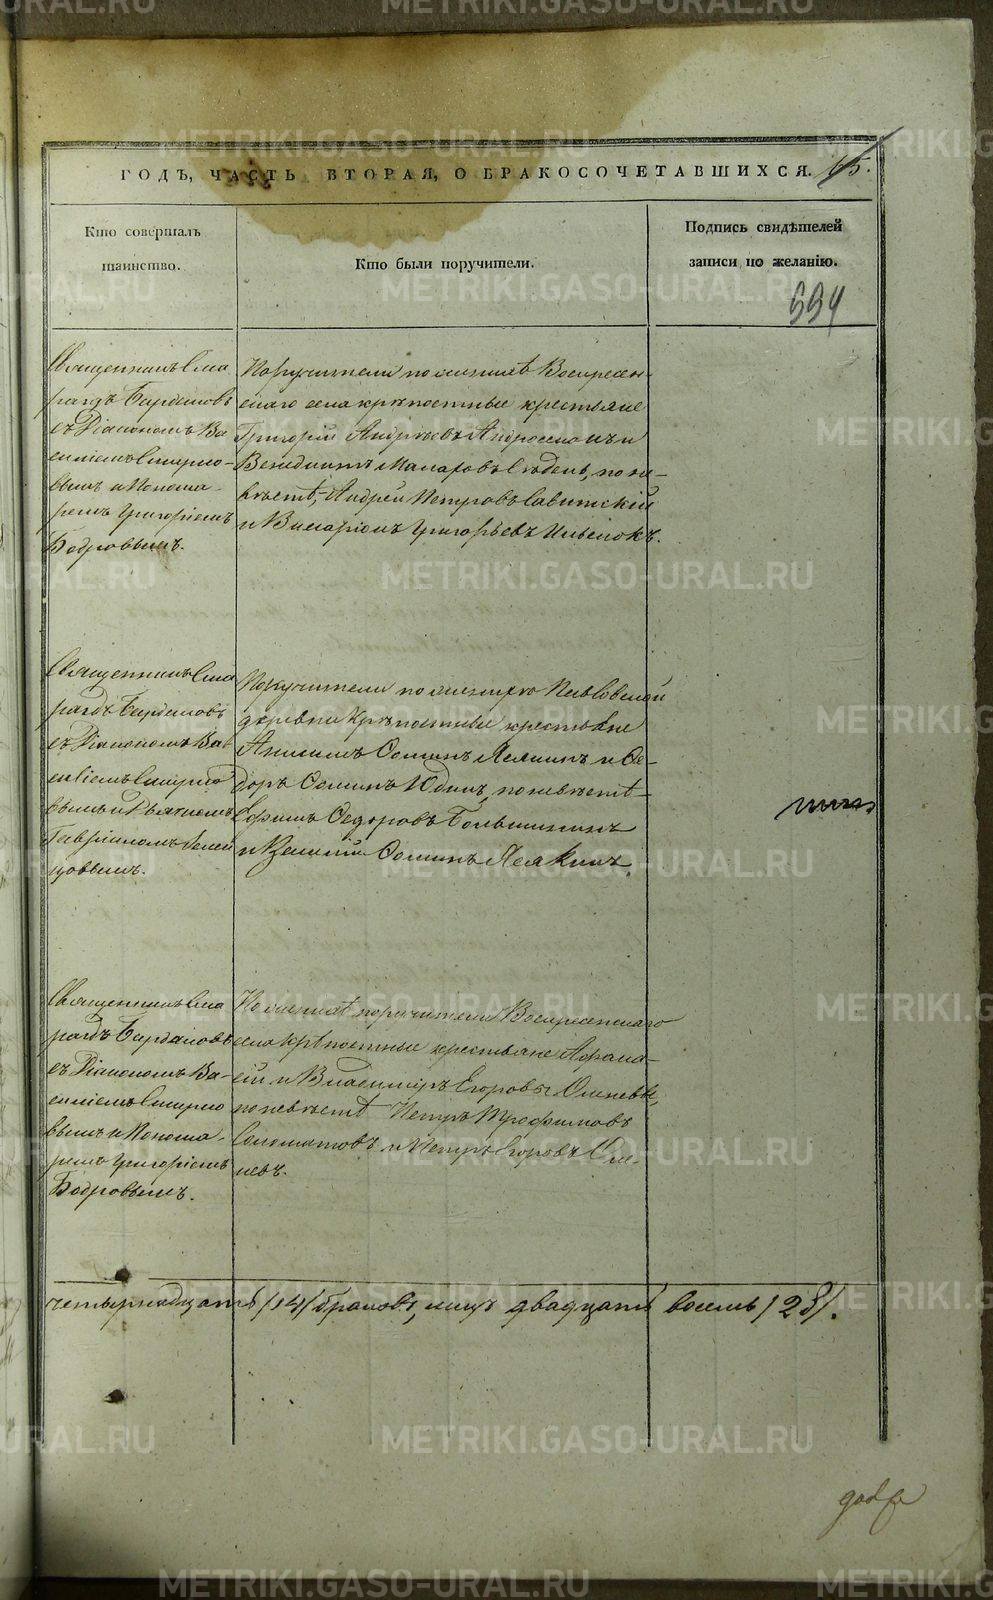 ГОДЪ, ЧАСТЬ ВТОРАЯ, О БРАКОСОЧЕТАВШИХСЯ. 65.
Кто совершалъ
таинство.
Кто были поручители.
Подпись свидѣтелей
записи по желанію.
994
Священникъ Сма
рагдъ Бирдановъ
съ Діакономъ Ва
силіемъ Смирно-
вымъ и Понома-
ремъ Григоріемъ
Бодровымъ.
Поручители по женихѣ Воскресен-
скаго села крѣпостные крестьяне
Григорій Андреевъ и
Венедиктъ Макаровъ по не-
вѣстѣ, Андрей Петровъ Савитскій
и Григорьевъ
Священникъ Сма
рагдъ Бирдановъ
съ Діакономъ Ва
силіемъ Смирно
вымъ и Дьячкомъ
Гавріиломъ
Поручители по женихѣ Павловской
деревни крѣпостные крестьяне
Анисимъ Ѳоминъ Лелякинъ и Ѳе-
доръ Ѳоминъ Юдинъ, по невѣстѣ
Ефимъ Ѳедоровъ
и Ѳоминъ Лелякинъ.
Священникъ Сма
рагдъ Бирдановъ
съ Діакономъ Ва-
силіемъ Смирно
вымъ и Понома-
ремъ Григоріемъ
Бодровымъ.
По женихѣ поручители Воскресенскаго
села крѣпостные крестьяне Афана-
сій и Владиміръ Егоровы
по невѣстѣ Петръ Трофимовъ
Соломатовъ и Петръ Егоровъ
четырнадцать /14/ браковъ, лицъ двадцать восемь /28/.